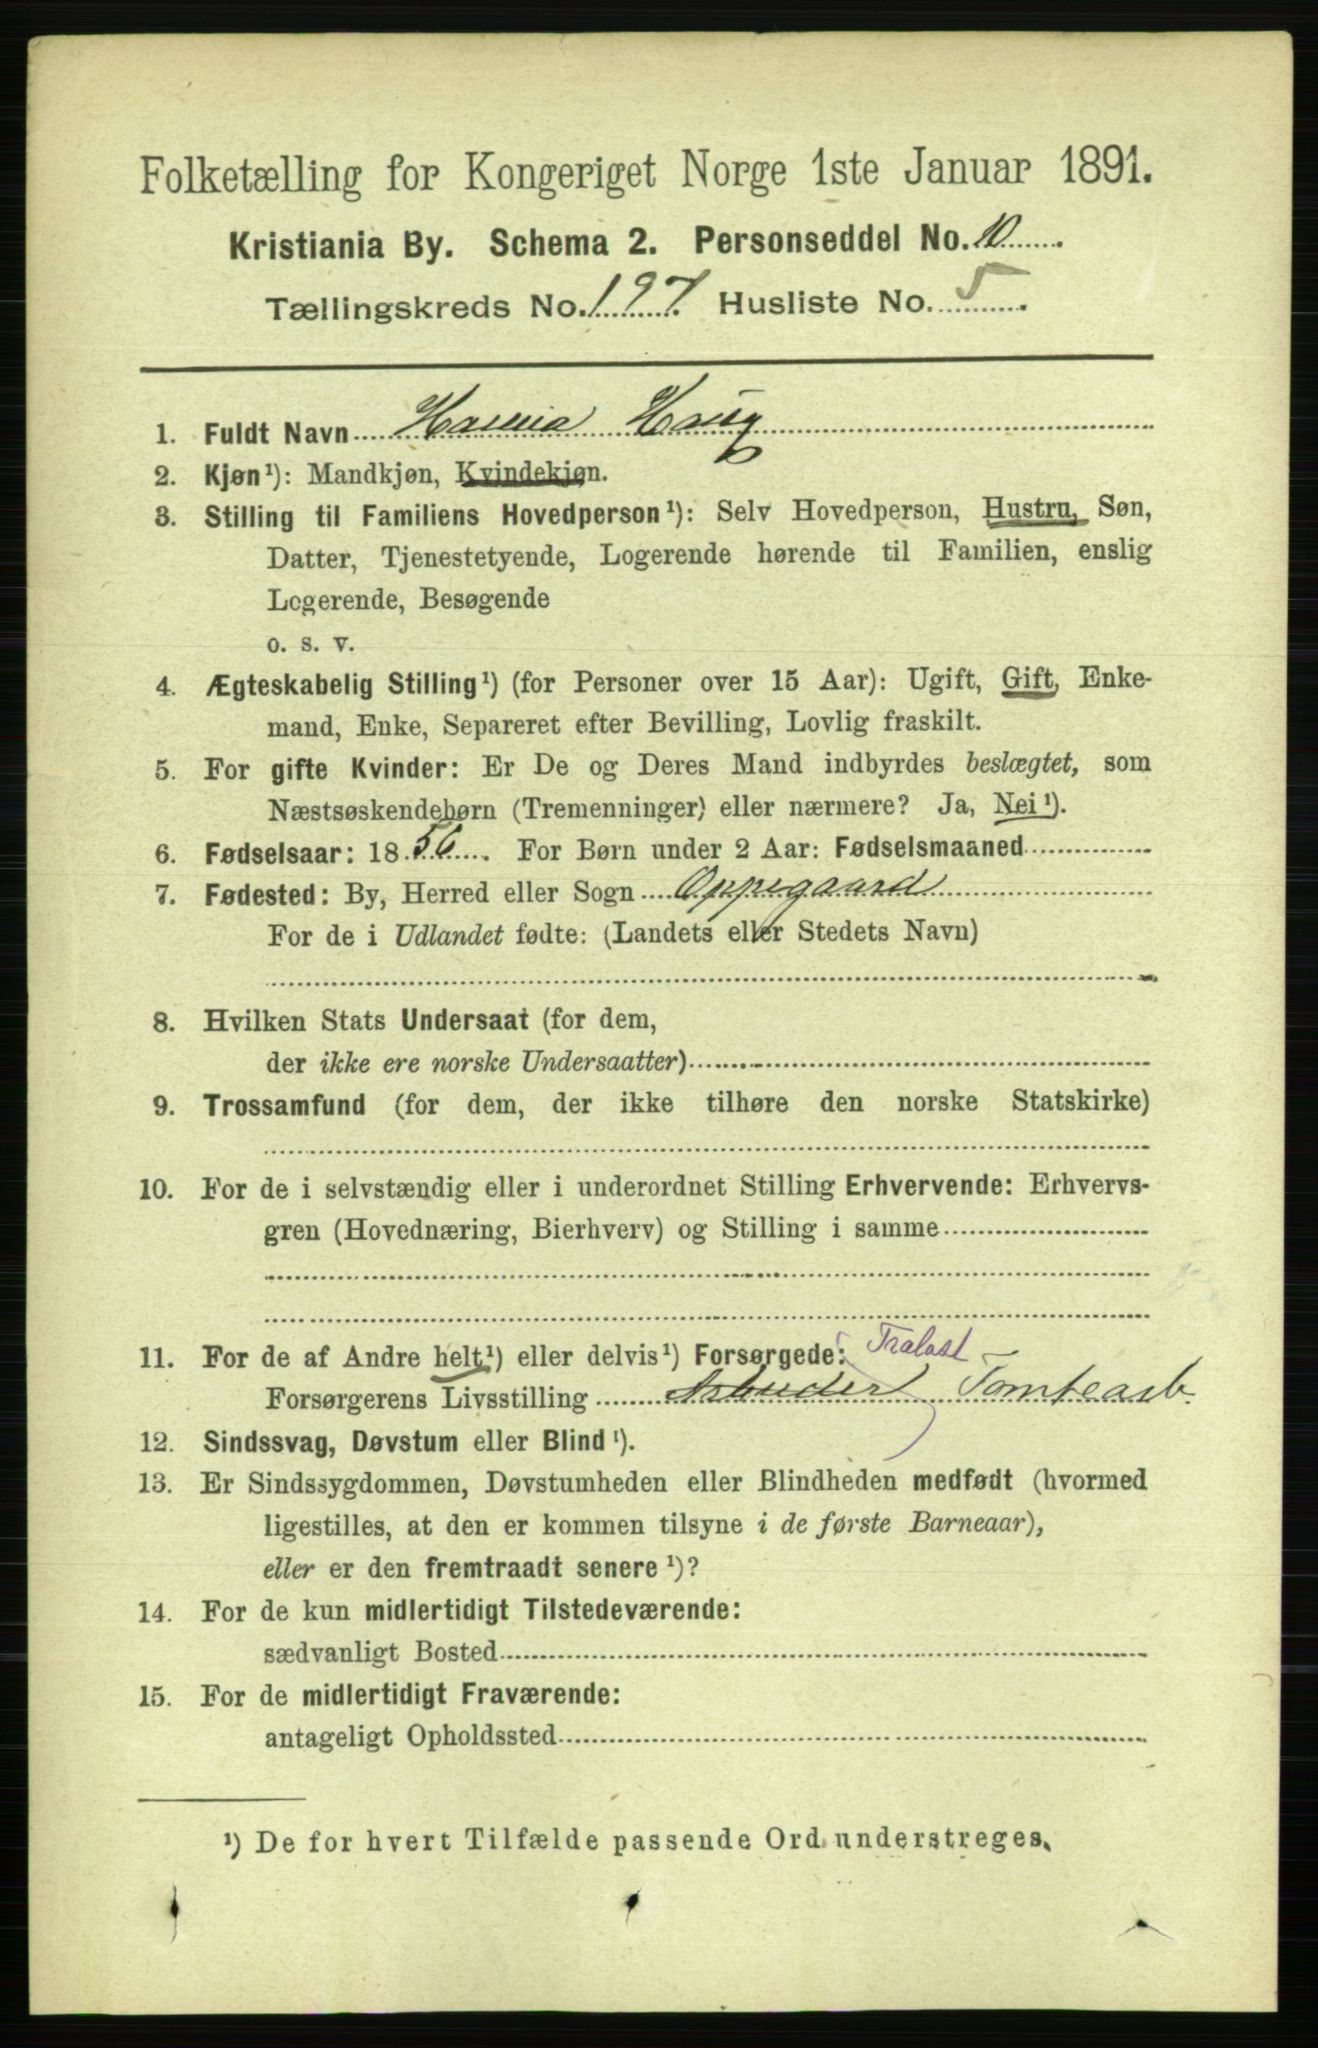 Folketælling for Kongeriget Norge 1ste Januar 1891.
Kristiania By. Schema 2. Personseddel No. 10
Tællingskreds No. 197 Husliste No. 5
1. Fuldt Navn Hanna Haug
2. Kjøn¹): Mandkjøn, Kvindekjøn.
3. Stilling til Familiens Hovedperson¹): Selv Hovedperson, Hustru, Søn,
Datter, Tjenestetyende, Logerende hørende til Familien, enslig
Logerende, Besøgende
o. s. v.
4. Ægteskabelig Stilling¹) (for Personer over 15 Aar): Ugift, Gift, Enke-
mand, Enke, Separeret efter Bevilling, Lovlig fraskilt.
5. For gifte Kvinder: Er De og Deres Mand indbyrdes beslægtet, som
Næstsøskendebørn (Tremenninger) eller nærmere? Ja, Nei¹).
6. Fødselsaar: 1856. For Børn under 2 Aar: Fødselsmaaned
7. Fødested: By, Herred eller Sogn Oppegaard
For de i Udlandet fødte: (Landets eller Stedets Navn)
8. Hvilken Stats Undersaat (for dem,
der ikke ere norske Undersaatter)
9. Trossamfund (for dem, der ikke tilhøre den norske Statskirke)
10. For de i selvstændig eller i underordnet Stilling Erhvervende: Erhvervs-
gren (Hovednæring, Bierhverv) og Stilling i samme
11. For de af Andre helt¹) eller delvis¹) Forsørgede: Tralast
Forsørgerens Livsstilling Arbeider Tomtearb.
12. Sindssvag, Døvstum eller Blind¹).
13. Er Sindssygdommen, Døvstumheden eller Blindheden medfødt (hvormed
ligestilles, at den er kommen tilsyne i de første Barneaar),
eller er den fremtraadt senere¹)?
14. For de kun midlertidigt Tilstedeværende:
sædvanligt Bosted
15. For de midlertidigt Fraværende:
antageligt Opholdssted
¹) De for hvert Tilfælde passende Ord understreges.